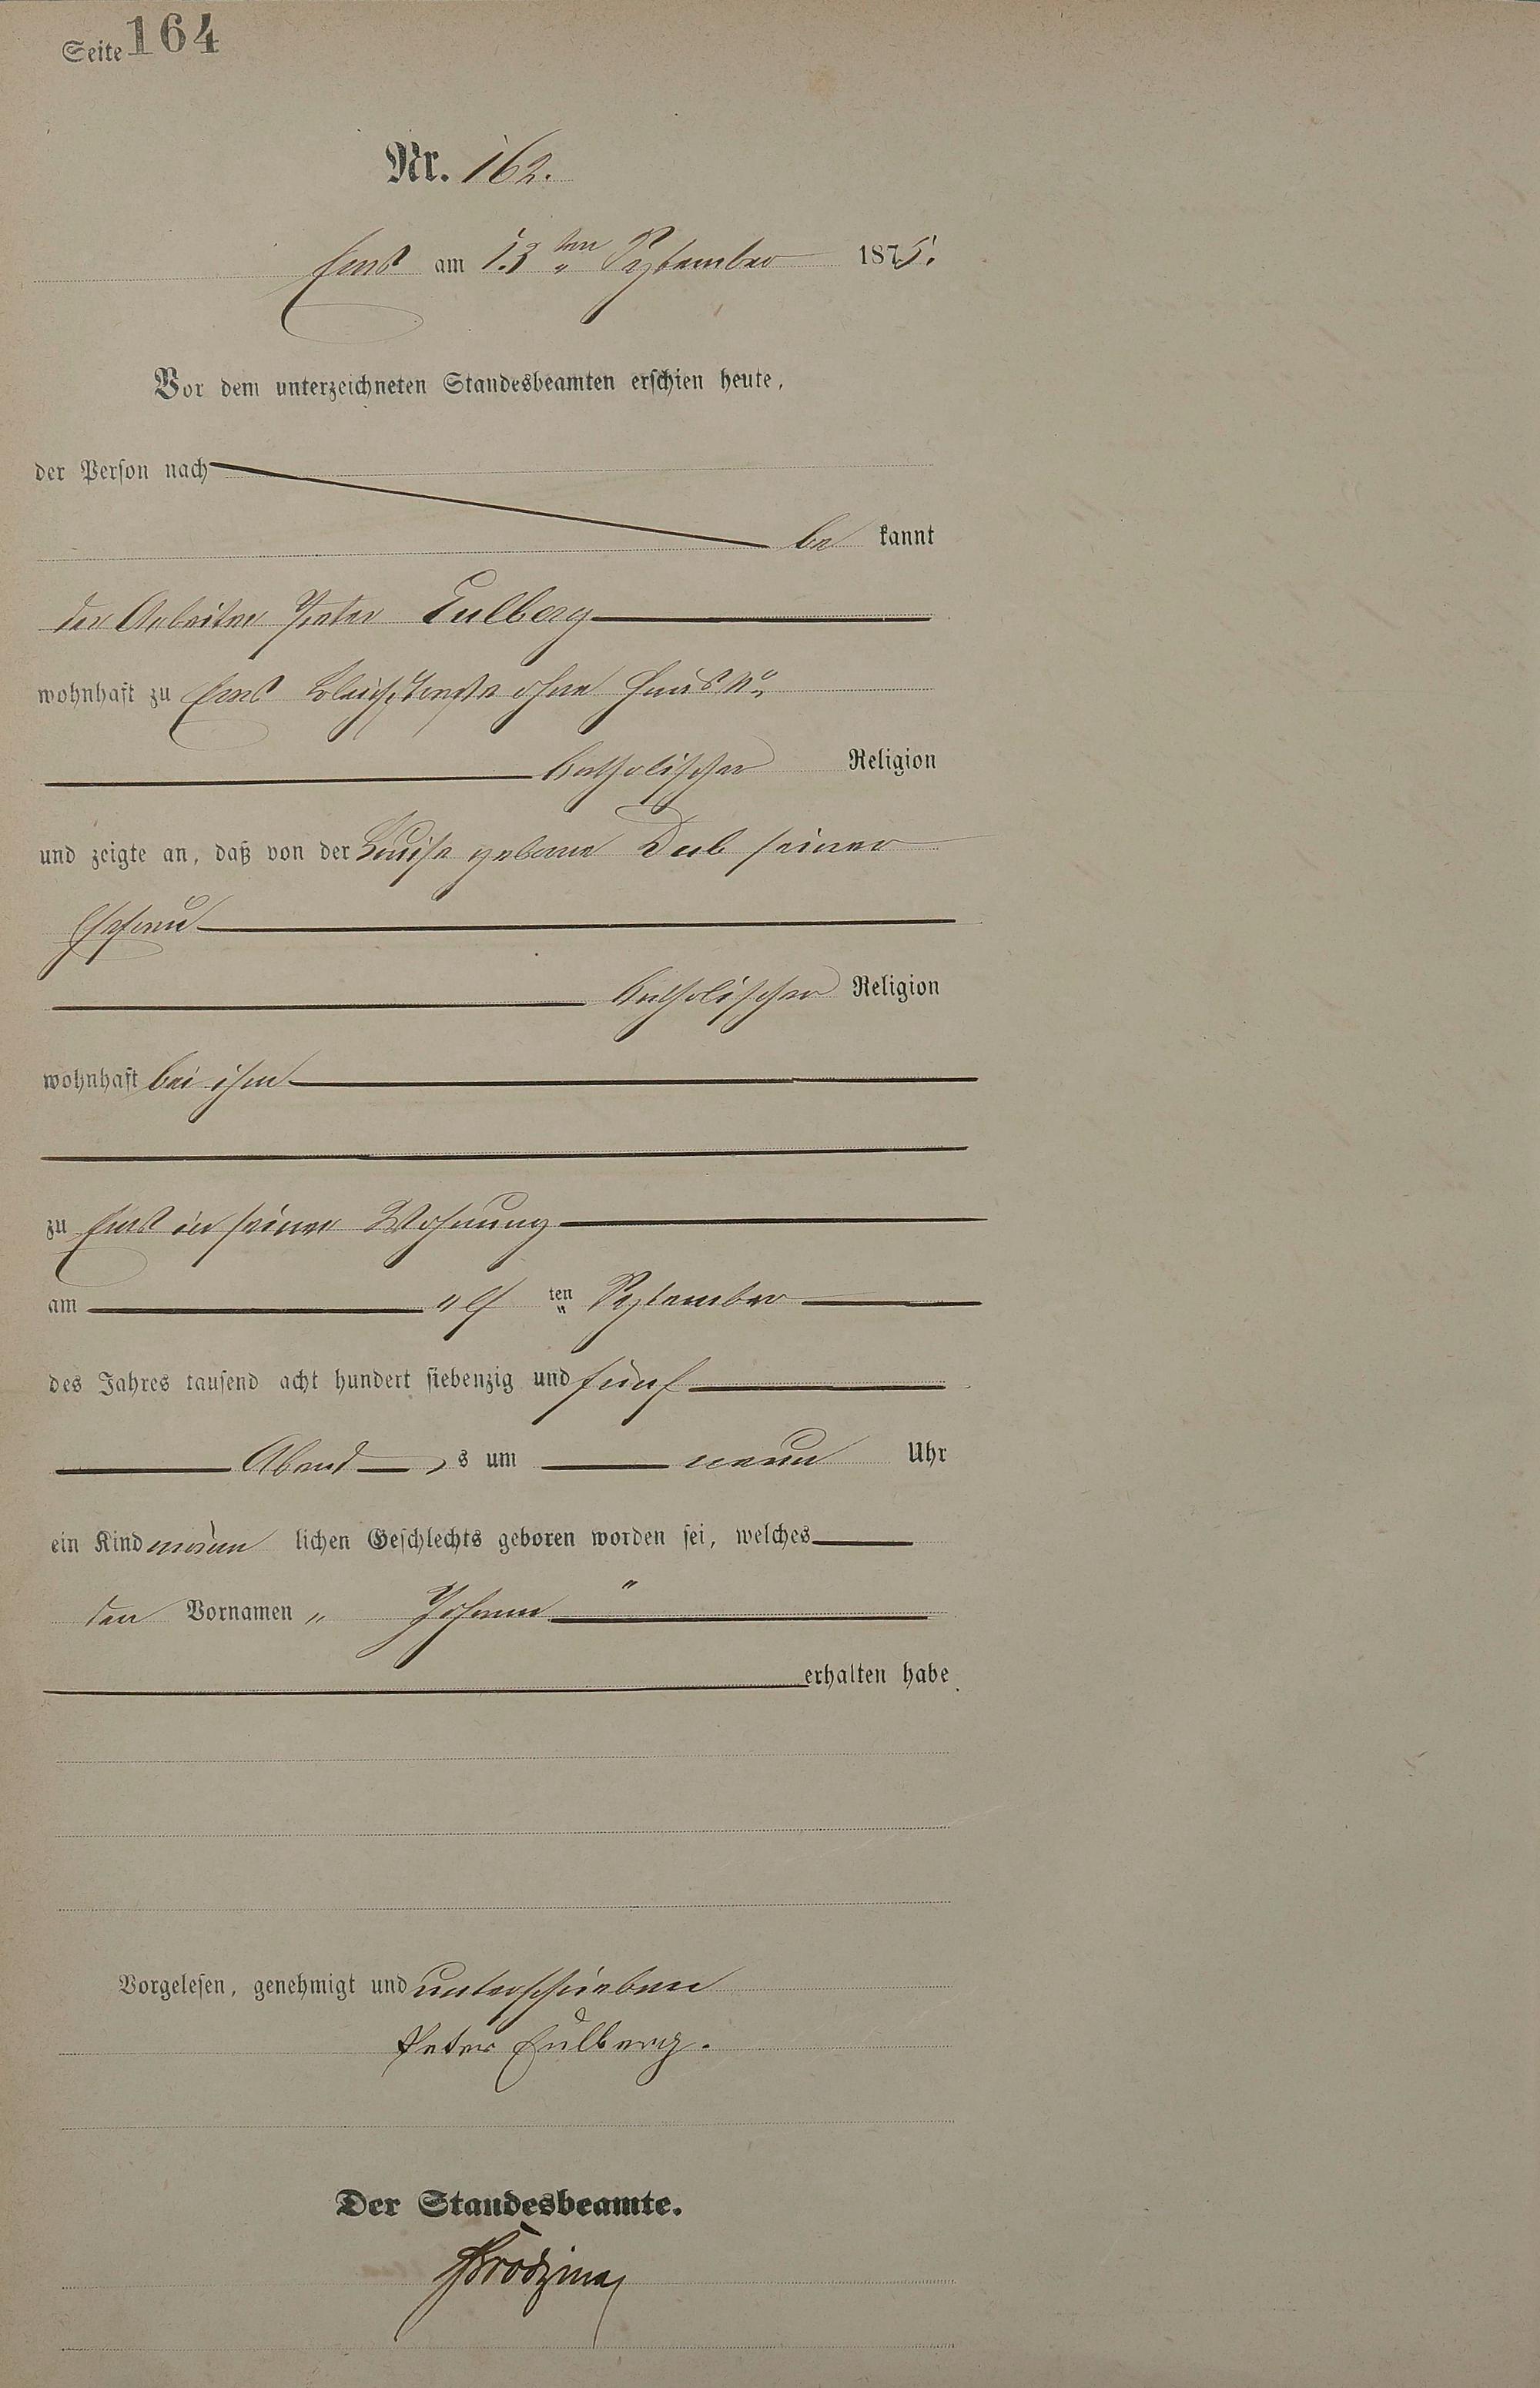 Seite 164
Nr. 162.
Ems am 13ten September 1875.
Vor dem unterzeichneten Standesbeamten erschien heute,
der Person nach
be kannt
der Arbeiter Peter Eulberg
wohnhaft zu Ems Bleichstraße ohne Haus No
katholischer Religion
und zeigte an, daß von der Louise geborne Dub seiner
Ehefrau
katholischer Religion
wohnhaft bei ihm
zu Ems in seiner Wohnung
am elf ten September
des Jahres tausend acht hundert siebenzig und fünf
Abend s um neun Uhr
ein Kind männ lichen Geschlechts geboren worden sei, welches
den Vornamen „ Johann "
erhalten habe.
Vorgelesen, genehmigt und unterschrieben
Peter Eulberg.
Der Standesbeamte.